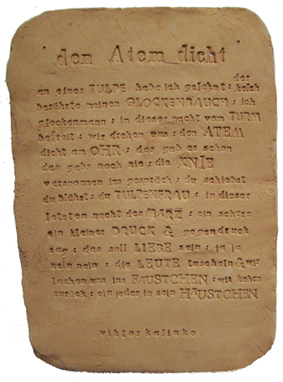 den Atem dicht
der
an einer TULPE habe ich gelehnt : kelch
berührte meinen GLOCKENBAUCH : ich
glockenmann : in dieser nacht vom TURM
befreit : wir drehen uns : den ATEM
dicht am OHR : das gab es schon
das gabs noch nie : die KNIE
versponnen ins gespräch : du schiebst
du blühst : du TULPENFRAU : in dieser
letzten nacht des MÄRZ : ein scherz
ein kleiner DRUCK & gegendruck
sag : das soll LIEBE sein : ja ja
nein nein : die LEUTE tuscheln & wir
lachen uns ins FÄUSTCHEN : wir kehrn
zurück : ein jeder in sein HÄUSTCHEN
viktor kalinke